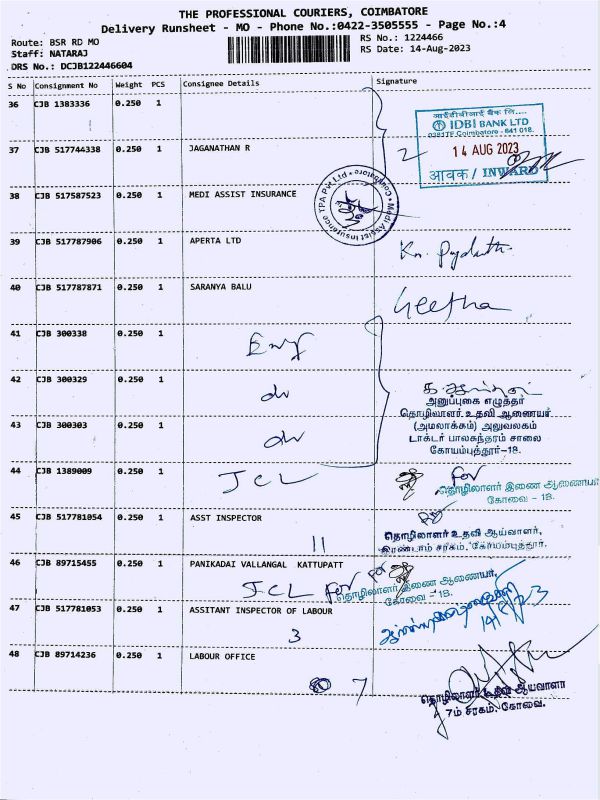 THE PROFESSIONAL COURIERS, COIMBATORE
Delivery Runsheet - MO - Phone No.:0422-3505555 - Page No.:4
Route: BSR RD MO
RS No.: 1224466
Staff: NATARAJ
RS Date: 14-Aug-2023
DRS No.: DCJB122446604
S No Consignment No Weight PCS Consignee Details Signature
36 CJB 1383336 0.250 1
आईडीबीआई बैंक लि....
IDBI BANK LTD
Coimbatore - 641 018.
14 AUG 2023
आवक / INWARD
37 CJB 517744338 0.250 1 JAGANATHAN R
2
38 CJB 517587523 0.250 1 MEDI ASSIST INSURANCE
Medi Assist Insurance TPA Pvt Ltd * Coimbatore *
39 CJB 517787906 0.250 1 APERTA LTD
40 CJB 517787871 0.250 1 SARANYA BALU
Geetha
41 CJB 300338 0.250 1
42 CJB 300329 0.250 1
do
அனுப்புகை எழுத்தர்
தொழிலாளர் உதவி ஆணையர்
43 CJB 300303 0.250 1
do
(அமலாக்கம்) அலுவலகம்
டாக்டர் பாலசுந்தரம் சாலை
கோயம்புத்தூர்-18.
44 CJB 1389009 0.250 1
JCL
for
தொழிலாளர் இணை ஆணையர்
கோவை - 18.
45 CJB 517781054 0.250 1 ASST INSPECTOR
11
தொழிலாளர் உதவி ஆய்வாளர்,
இரண்டாம் சரகம், கோயம்புத்தூர்.
46 CJB 89715455 0.250 1 PANIKADAI VALLANGAL KATTUPATT
JCL for
தொழிலாளர் இணை ஆணையர்,
கோவை - 18.
47 CJB 517781053 0.250 1 ASSITANT INSPECTOR OF LABOUR
3
48 CJB 89714236 0.250 1 LABOUR OFFICE
7
தொழிலாளர் உதவி ஆய்வாளர்
7ம் சரகம், கோவை.